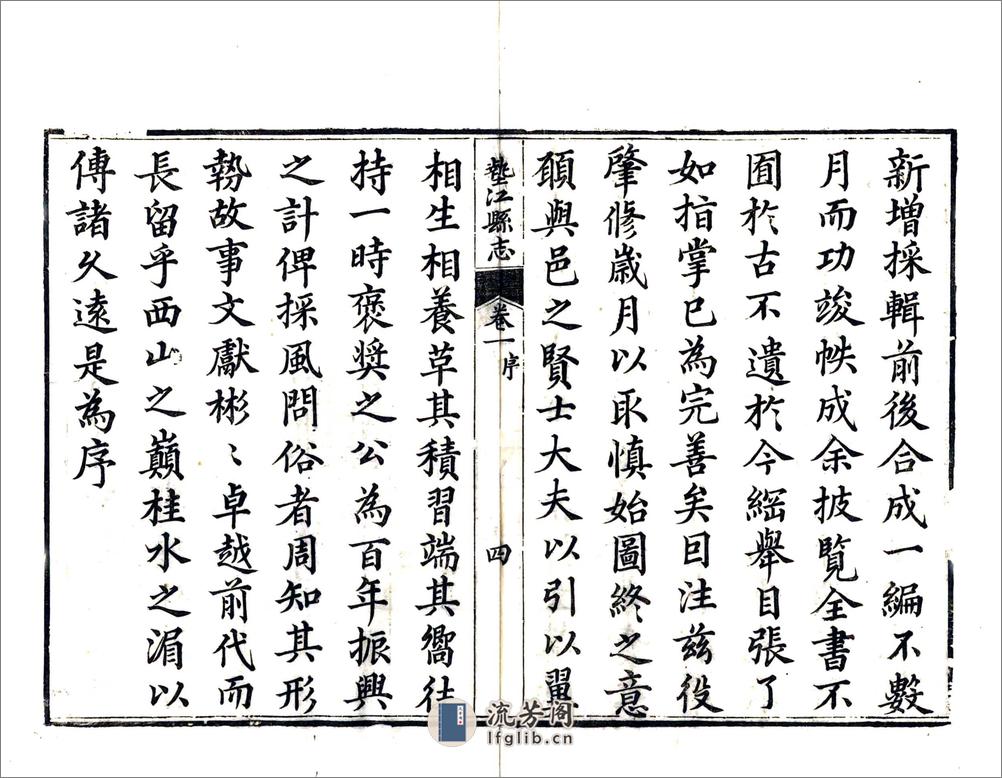 新增採輯前後合成一編不數
月而功竣帙成余披覽全書不
囿於古不遺於今綱舉目張了
如指掌已為完善矣因注茲役
肇修歲月以取慎始圖終之意
頤與邑之賢士大夫以引以翼
墊江縣志
卷一
序
四
相生相養草其積習端其嚮往
持一時褒奬之公為百年振興
之計俾採風問俗者周知其形
勢故事文獻彬〻卓越前代而
長留乎西山之巔桂水之湄以
傳諸久遠是為序
流芳阁
lfglib.cn